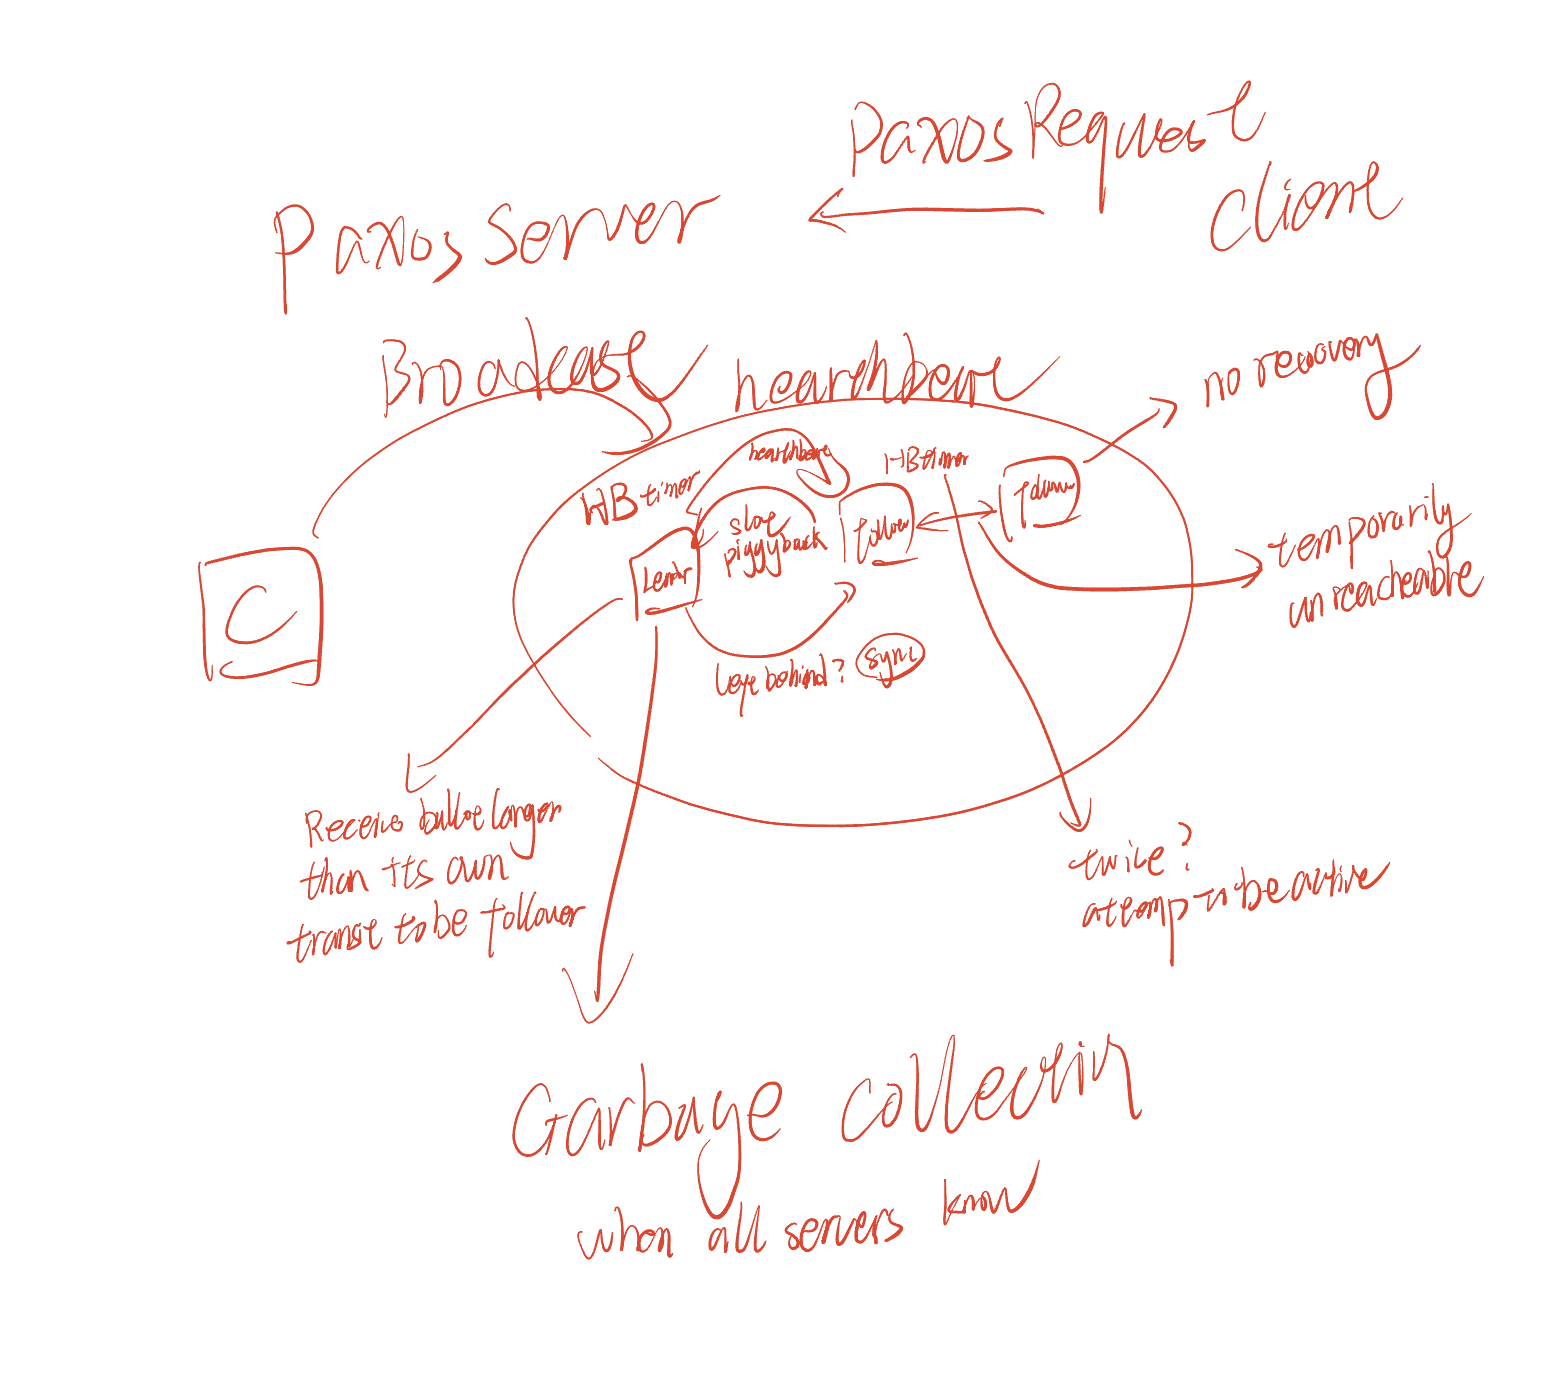 PaxosRequest
Client
PaxosServer
Broadcast heartbeat
no recovery
heartbeat
HB timer
HB timer
down
slot
piggyback
follower
Leader
temporarily
unreacheable
C
behind? sync
Receive ballot larger
than its own
transit to be follower
twice?
attemp to be active
Garbage collection
when all servers know